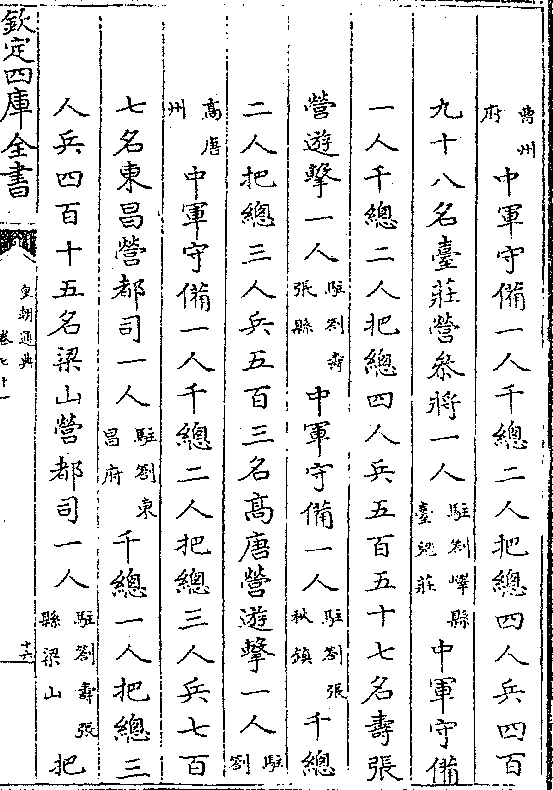 曹州府中軍守備一人千總二人把總四人兵四百
九十八名臺莊營叅將一人駐劄嶧縣臺兒莊中軍守備
一人千總二人把總四人兵五百五十七名壽張
營遊擊一人駐劄壽張縣中軍守備一人駐劄張秋鎮千總
二人把總三人兵五百三名髙唐營遊擊一人駐劄
髙唐州中軍守備一人千總二人把總三人兵七百
七名東昌營都司一人駐劄東昌府千總一人把總三
人兵四百十五名梁山營都司一人駐劄壽張縣梁山把
欽定四庫全書
皇朝通典
卷七十一
十六